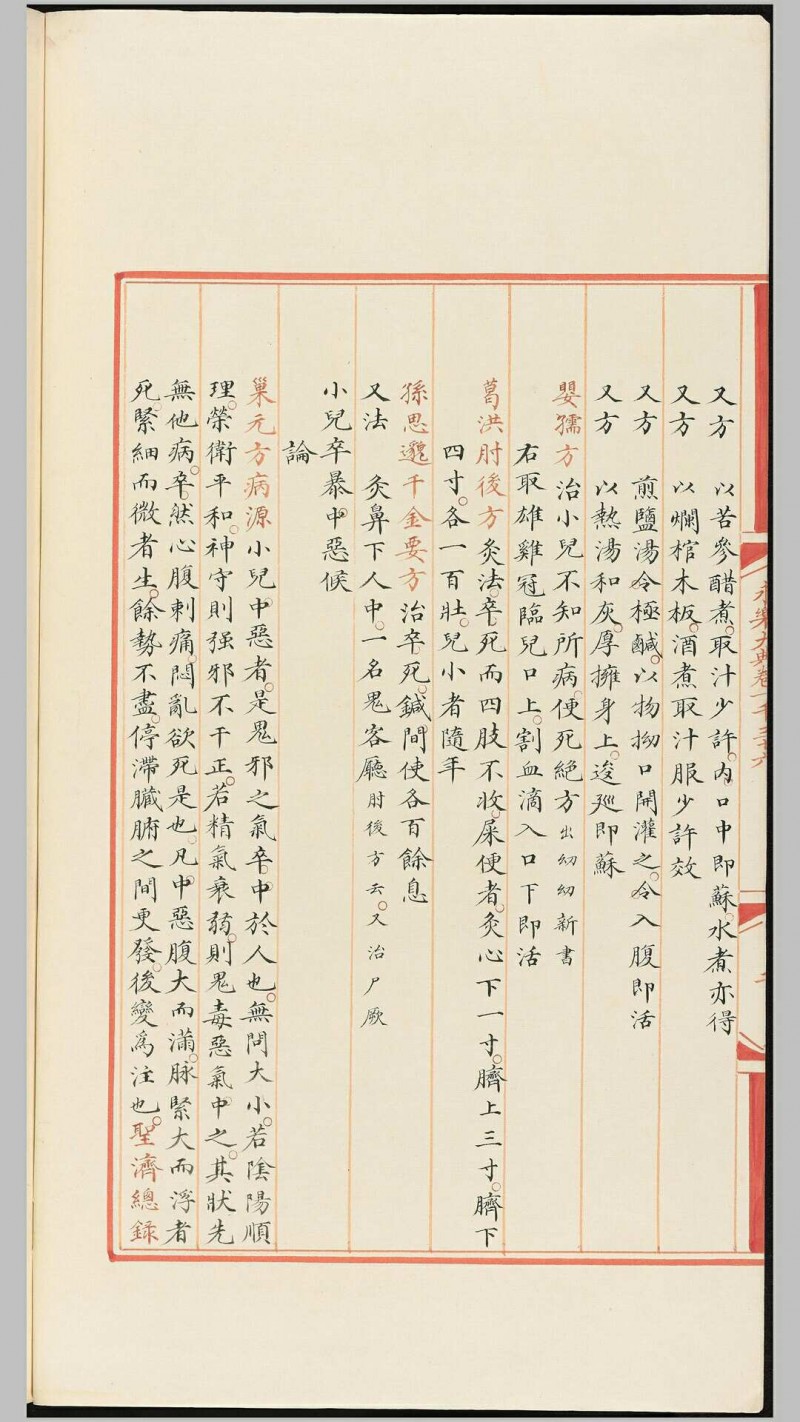 永樂大典卷一千三十六
又方　以苦參醋煮。取汁少許。内口中即蘇。水煮亦得
又方　以爛棺木板。酒煮取汁服少許效
又方　煎鹽湯令極鹹。以物拗口開灌之。令入腹即活
又方　以熱湯和灰。厚擁身上。逡廵即蘇
嬰孺方治小兒不知所病。便死絕方出幼幼新書
右取雄雞冠臨兒口上。割血滴入口下即活
葛洪肘後方灸法。卒死而四肢不收。屎便者。灸心下一寸。臍上三寸。臍下
四寸。各一百壯。兒小者隨年
孫思邈千金要方治卒死。鍼間使各百餘息
又法　灸鼻下人中。一名鬼客廳肘後方云。又治尸厥
小兒卒暴中惡候
論
巢元方病源小兒中惡者。是鬼邪之氣卒中於人也。無問大小。若陰陽順
理。榮衛平和。神守則强邪不干正。若精氣衰弱。則鬼毒惡氣中之。其狀先
無他病。卒然心腹刺痛。悶亂欲死是也。凡中惡腹大而滿。脉緊大而浮者
死。緊細而微者生。餘勢不盡。停滯臟腑之間更發。後變爲注也。聖濟總録